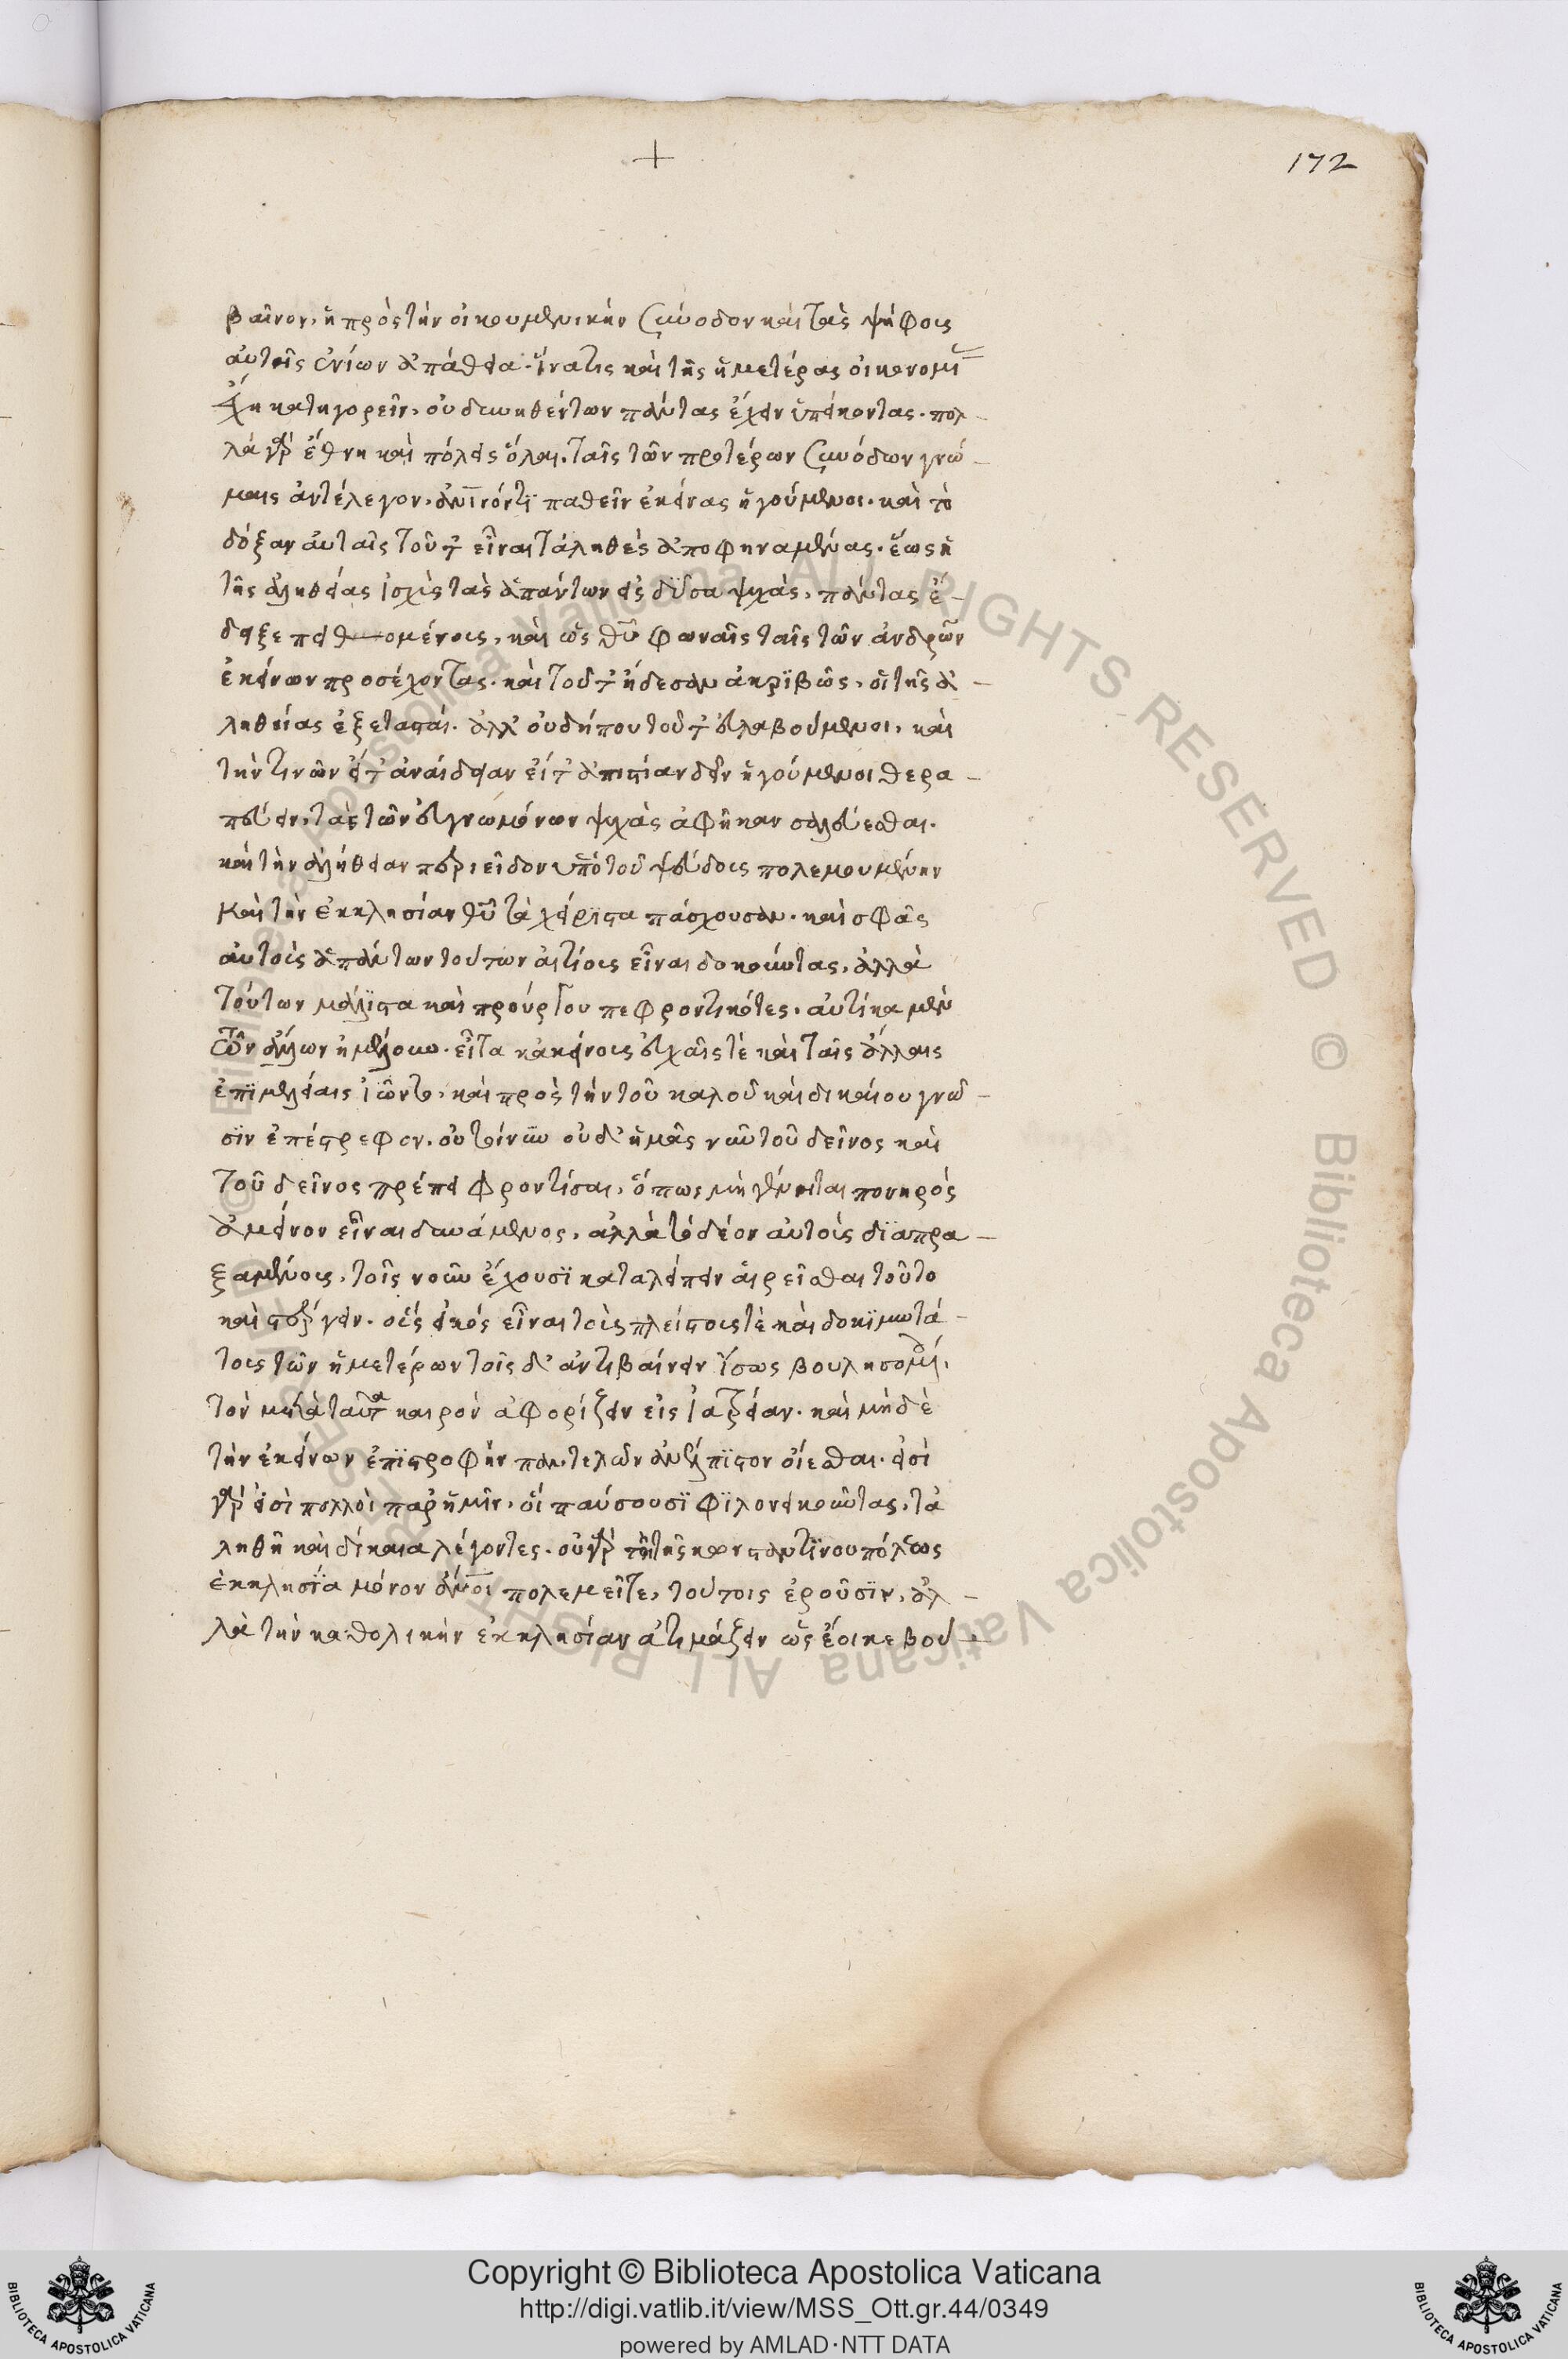 172
βαῖνον, ἢ πρὸς τὴν οἰκουμενικὴν σύνοδον καὶ τὰς ψήφους
αὐτῆς ἐνίων ἀπάθεια. ἵνα τις καὶ τῆς ἡμετέρας οἰκονομί
ἔχη κατηγορεῖν, οὐ δυνηθέντων πάντας ἔχειν ὑπείκοντας. πολ-
λὰ γὰρ ἔθνη καὶ πόλεις ὅλαι, ταῖς τῶν προτέρων συνόδων γνώ-
μαις ἀντέλεγον, παθεῖν ἐκείνας ἡγούμενοι. καὶ τὸ
δόξαν αὐταῖς τοῦτ' εἶναι τἀληθὲς ἀποφηναμένας. ἕως ἡ
τῆς ἀληθείας ἰσχὺς τὰς ἁπάντων εἰσδῦσα ψυχὰς, πάντας ἔ-
δειξε πειθομένους, καὶ ὡς θῦ φωναῖς ταῖς τῶν ἀνδρῶν
ἐκείνων προσέχοντας. καὶ τοῦτ' ᾔδεσαν ἀκριβῶς, οἱ τῆς ἀ-
ληθείας ἐξετασταί. ἀλλ' οὐδήπου τοῦτ' εὐλαβούμενοι, καὶ
τὴν τινῶν εἴτ' ἀναίδειαν εἴτ' ἀπιστίαν δεῖν ἡγούμενοι θερα-
πεύειν, τὰς τῶν εὐγνωμόνων ψυχὰς ἀφῆκαν σαλεύεσθαι.
καὶ τὴν ἀλήθειαν περιεῖδον ὑπὸ τοῦ ψεύδους πολεμουμένην
καὶ τὴν ἐκκλησίαν θῦ τὰ χείριστα πάσχουσαν. καὶ σφᾶς
αὐτοὺς ἁπάντων τούτων αἰτίους εἶναι δοκοῦντας, ἀλλὰ
τούτων μάλιστα καὶ προύργου πεφροντικότες. αὐτίκα μὲν
τῶν ἄλλων ἠμέλουν. εἶτα κἀκείνους εὐχαῖς τὲ καὶ ταῖς ἄλλαις
ἐπιμελείαις ἰῶντο, καὶ πρὸς τὴν τοῦ καλοῦ καὶ δικαίου γνῶ-
σιν ἐπέστρεφον. οὐ τοίνυν οὐδ' ἡμᾶς νῦν τοῦ δεῖνος καὶ
τοῦ δεῖνος πρέπει φροντίσαι, ὅπως μὴ γένηται πονηρὸς
ἀμείνον εἶναι δυνάμενος, ἀλλὰ τὸ δέον αὐτοὺς διαπρα-
ξαμένους, τοῖς νοῦν ἔχουσι καταλείπειν αἱρεῖσθαι τοῦτο
καὶ στέργειν. οὓς εἰκός εἶναι τοὺς πλείστους τὲ καὶ δοκιμωτά-
τους τῶν ἡμετέρων τοῖς δ' ἀντιβαίνειν ἴσως βουλησομένοις,
τὸν μετὰ ταῦτα καιρὸν ἀφορίζειν εἰς ἰατρείαν. καὶ μὴ δὲ
τὴν ἐκείνων ἐπιστροφὴν παντελῶς ἀνέλπιστον οἴεσθαι. εἰσὶ
γὰρ εἰσὶ πολλοὶ παρ' ἡμῖν, οἳ παύσουσι φιλονεικοῦντας, τἀ
ληθῆ καὶ δίκαια λέγοντες. οὐ γὰρ τῇ τῆς κωνσταντινουπόλεως
ἐκκλησία μόνον πολεμεῖτε, τούτοις ἐροῦσιν, ἀλ-
λὰ τὴν καθολικὴν ἐκκλησίαν ἀτιμάζειν ὡς ἔοικε βού-
Copyright © Biblioteca Apostolica Vaticana
http://digi.vatlib.it/view/MSS_Ott.gr.44/0349
powered by AMLAD·NTT DATA
BIBLIOTECA APOSTOLICA VATICANA
BIBLIOTECA APOSTOLICA VATICANA